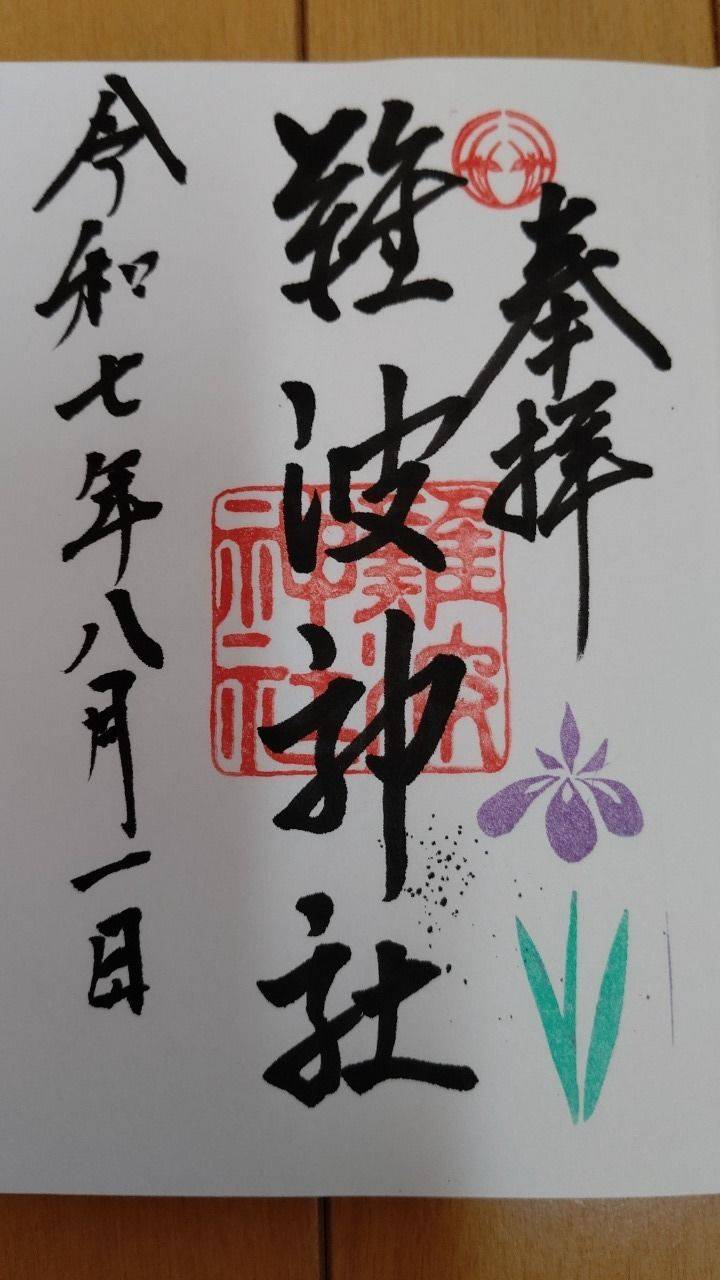 奉拝
難波神社
難波神社
令和七年八月一日